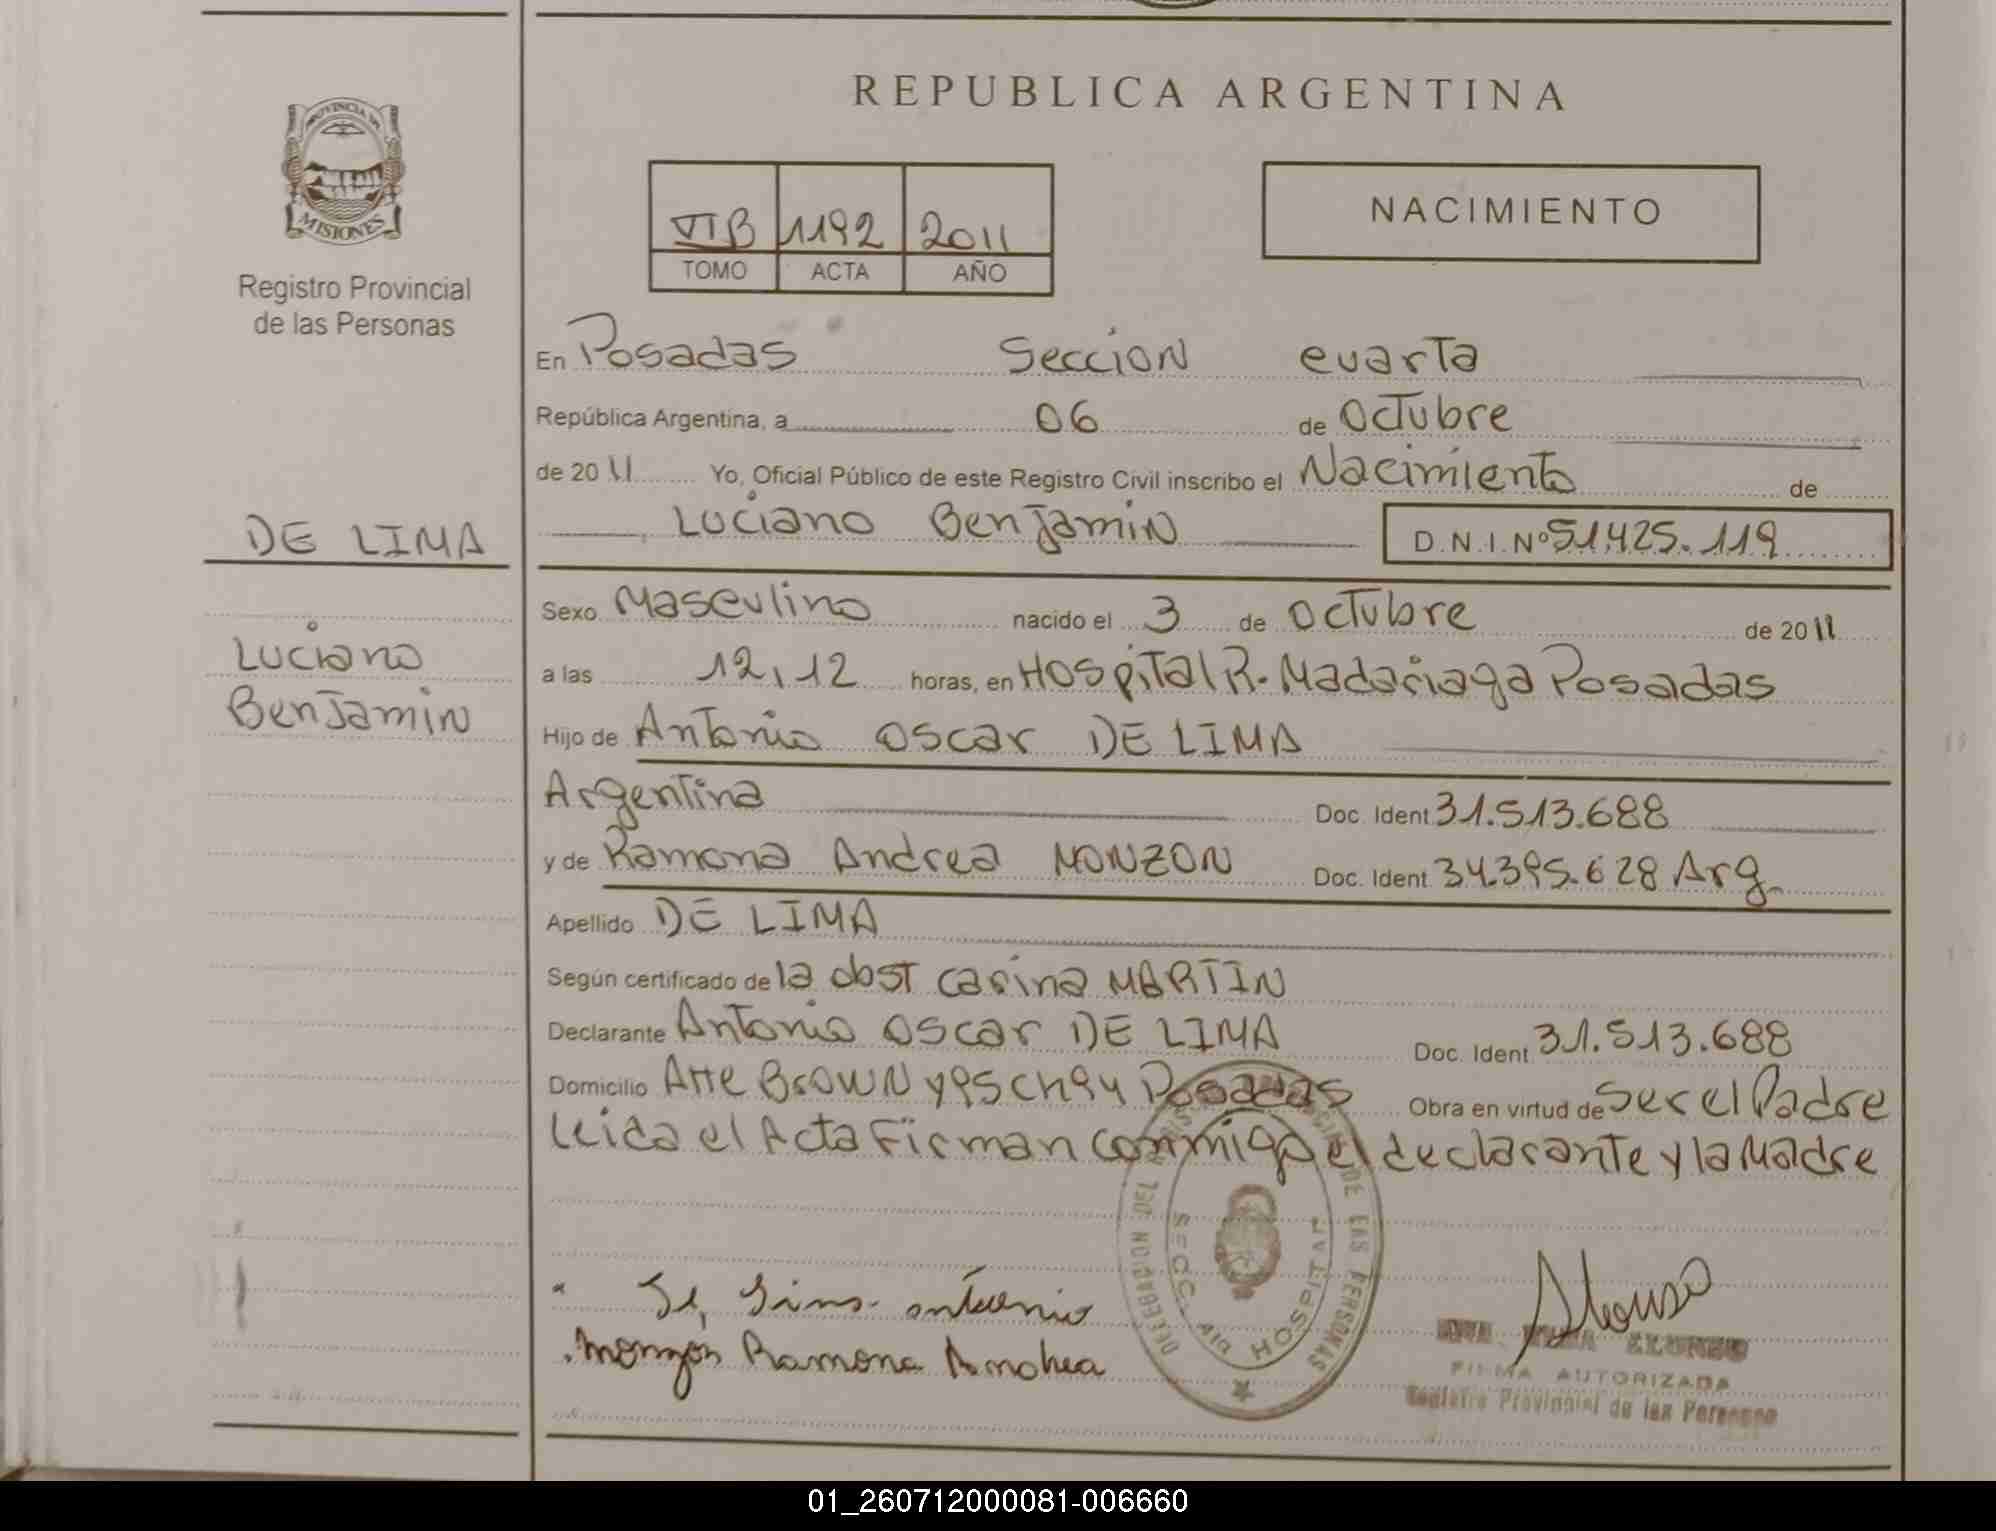 REPUBLICA ARGENTINA
PROVINCIA DE
MISIONES
Registro Provincial
de las Personas
VI B 1192 2011
TOMO ACTA AÑO
NACIMIENTO
En Posadas Seccion cuarta
República Argentina, a 06 de Octubre
de 20 11 Yo, Oficial Público de este Registro Civil inscribo el Nacimiento de
Luciano Benjamin D.N.I.Nº 51.425.119
DE LIMA
Luciano
Benjamin
Sexo Masculino nacido el 3 de Octubre de 20 11
a las 12,12 horas, en Hospital R. Madariaga Posadas
Hijo de Antonio Oscar DE LIMA
Argentina Doc. Ident 31.513.688
y de Ramona Andrea MONZON Doc. Ident 34.395.628 Arg.
Apellido DE LIMA
Según certificado de la obst Carina MARTIN
Declarante Antonio Oscar DE LIMA Doc. Ident 31.513.688
Domicilio Atte Brown y Posadas Obra en virtud de Ser el Padre
Leida el Acta Firman conmigo el declarante y la Madre
DELEGACION DEL DE LAS PERSONAS
SECC. HOSPITAL
antonio
Monzón Ramona Andrea
Alonso
ALONSO
FIRMA AUTORIZADA
Registro Provincial de las Personas
01_260712000081-006660